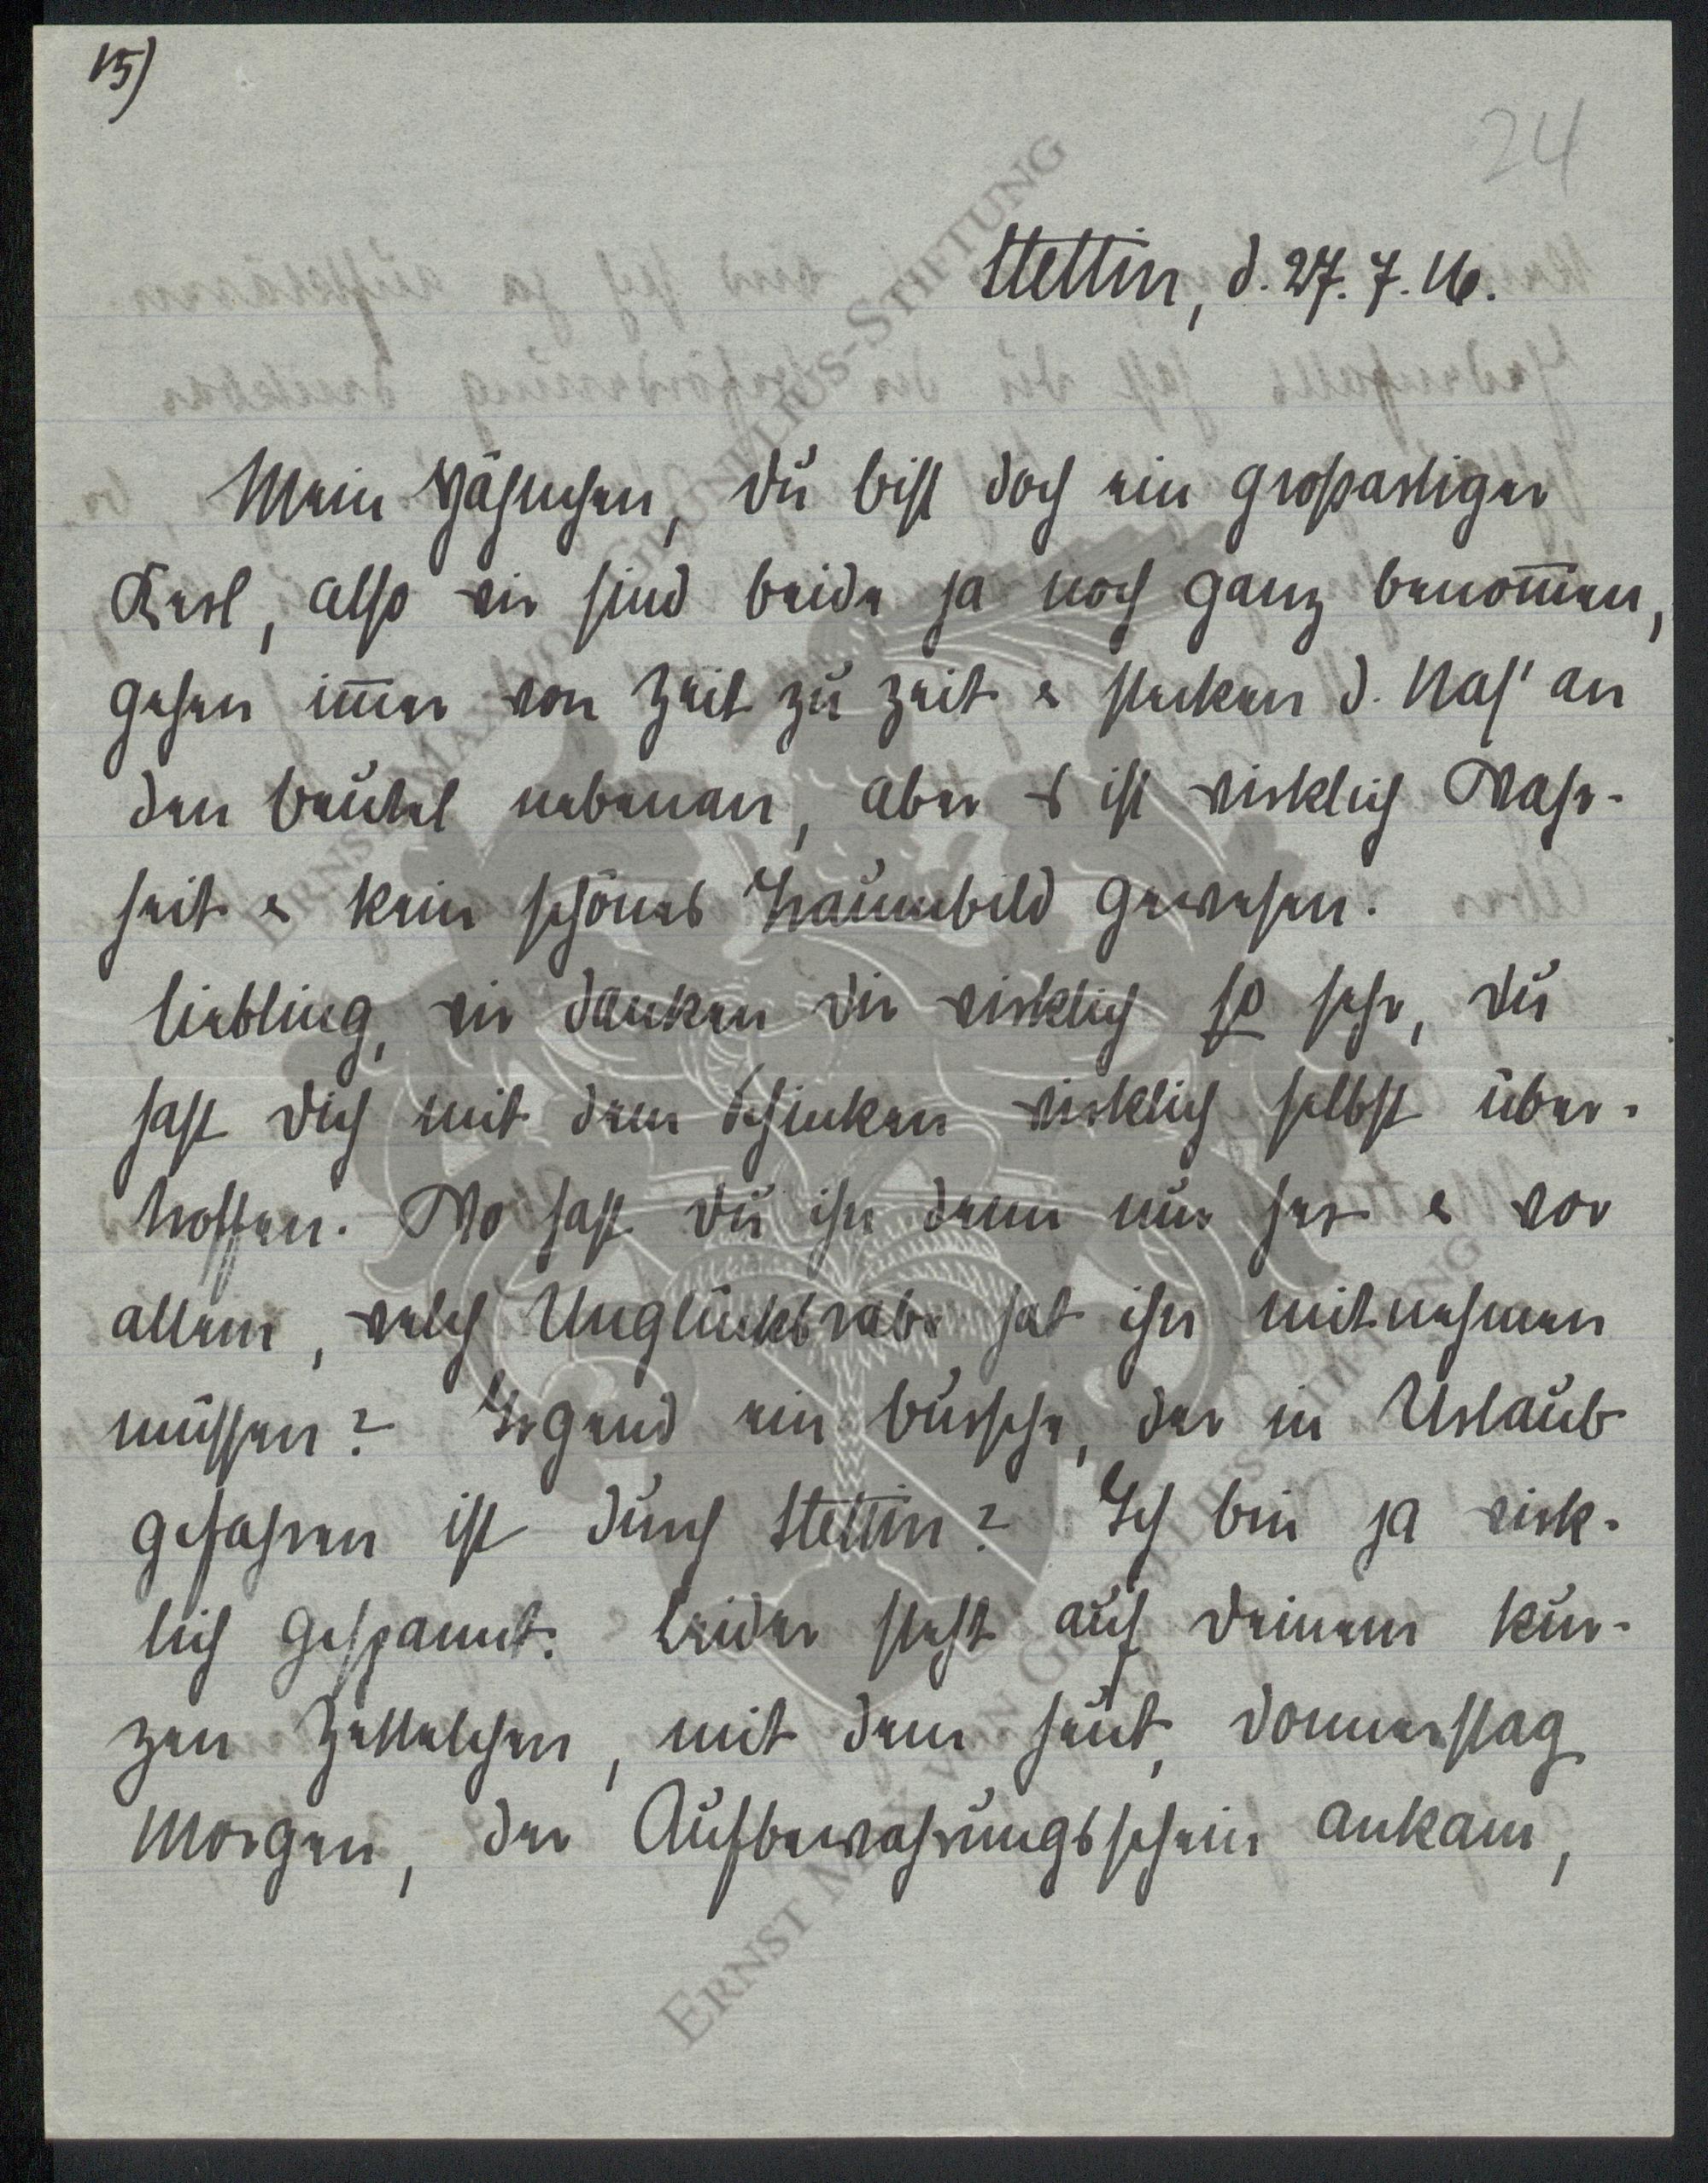 15)
24
Stettin, d. 27. 7. 16.
Mein Häschen, Du bist doch ein großartiger
Kerl, also wir sind beide ja noch ganz benom̅en,
gehen im̅er von Zeit zu Zeit & stecken d. Nas' an
den Beutel nebenan, aber es ist wirklich Wahr-
heit & kein schönes Traumbild gewesen.
Liebling, wir danken Dir wirklich so sehr, Du
hast Dich mit dem Schinken wirklich selbst über-
troffen. Wo hast Du ihn denn nur her & vor
allem, welch Unglücksrabe hat ihn mitnehmen
müssen? Irgend ein Bursche, der in Urlaub
gefahren ist durch Stettin? Ich bin ja wirk-
lich gespannt. Leider steht auf Deinem kur-
zen Zettelchen, mit dem heut, Donnerstag
Morgen, der Aufbewahrungsschein ankam,
ERNST MAX VON GRUNELIUS-STIFTUNG
ERNST MAX VON GRUNELIUS-STIFTUNG